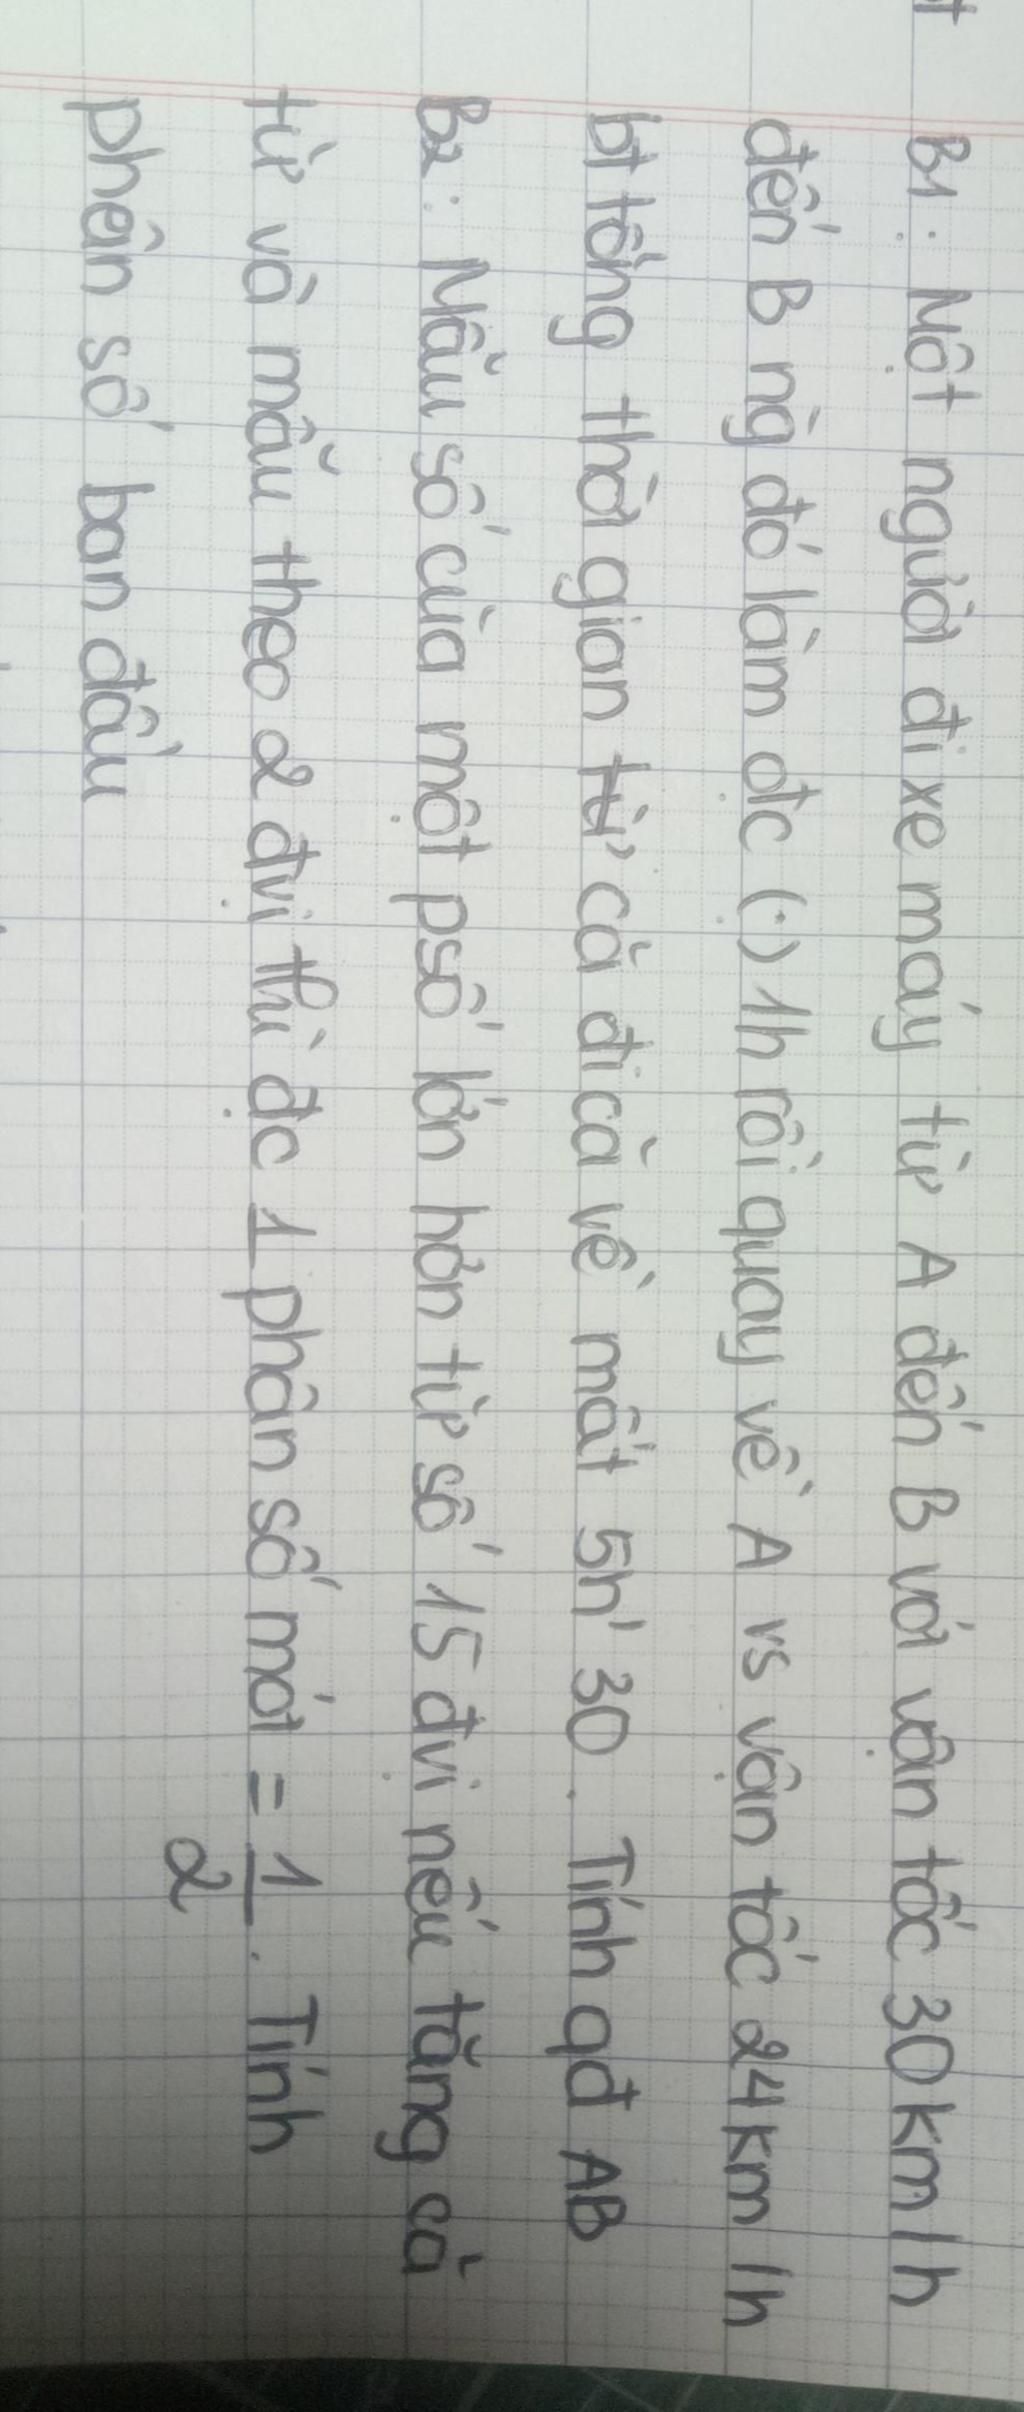 B1: Một người đi xe máy từ A đến B với vận tốc 30km/h
đến B ng̀ đó làm đtc (.) 1h rồi quay về A vs vận tốc 24km/h
bt tổng thời gian từ cả đi cả về mất 5h' 30. Tính qđ AB
B2: Mẫu số của một psố lớn hơn từ số 15 đvị nếu tăng cả
từ và mẫu theo 2 đvị thì đc 1 phân số mới = 1/2. Tính
phân số ban đầu